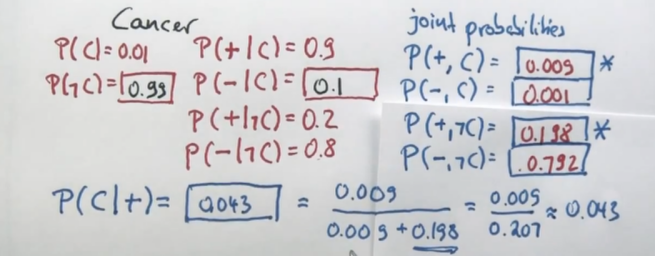 Cancer
P(C)=0.01 P(+|C)=0.9
P(¬C)=0.99 P(-|C)=0.1
P(+|¬C)=0.2
P(-|¬C)=0.8
joint probabilities
P(+,C)=0.009 *
P(-,C)=0.001
P(+,¬C)=0.198 *
P(-,¬C)=0.792
P(C|+)=0.043 = 0.009 / 0.009+0.198 = 0.009 / 0.207 ≈ 0.043